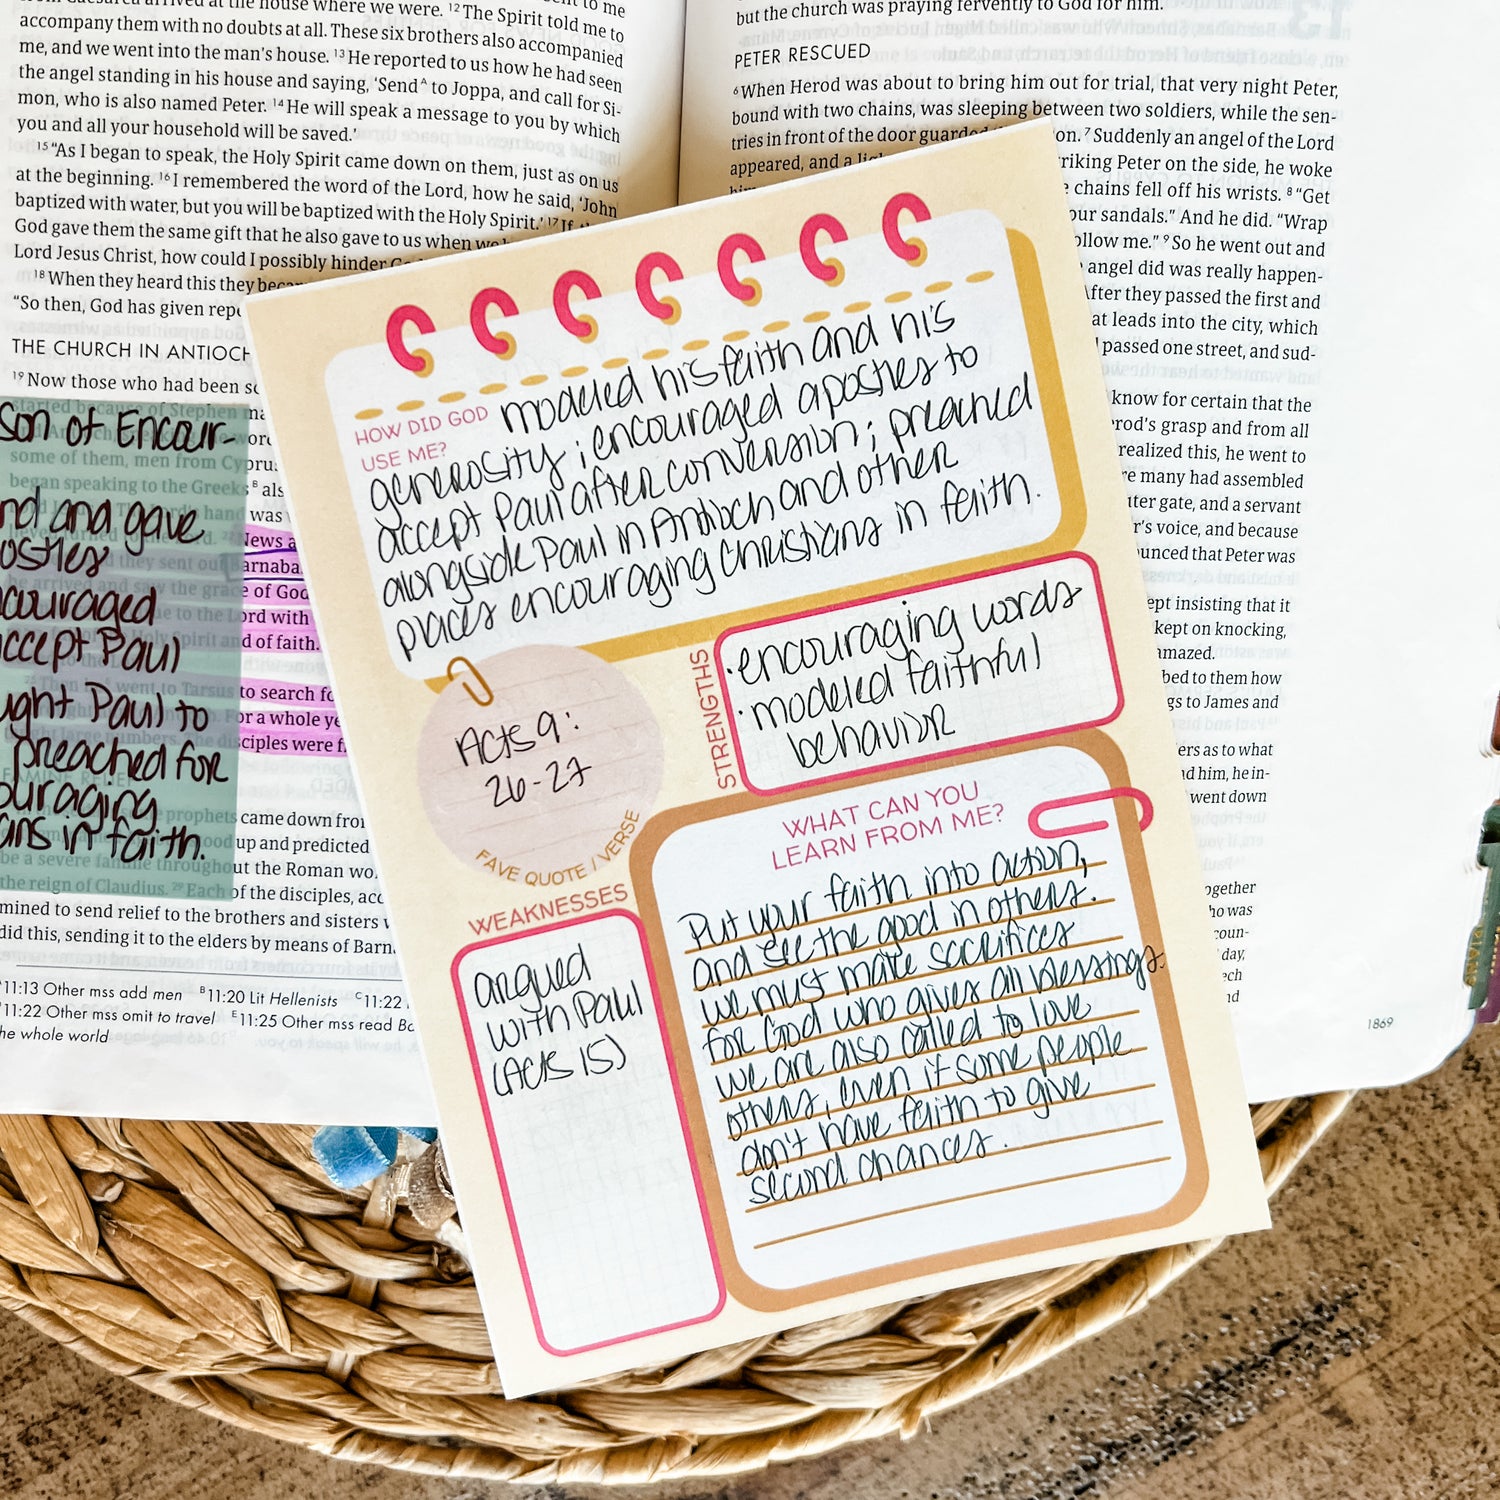 arrived at the house where we were. 12 The Spirit told me to
accompany them with no doubts at all. These six brothers also accompanied
me, and we went into the man's house. 13 He reported to us how he had seen
the angel standing in his house and saying, 'Send A to Joppa, and call for Si-
mon, who is also named Peter. 14 He will speak a message to you by which
you and all your household will be saved.'
15 "As I began to speak, the Holy Spirit came down on them, just as on us
at the beginning. 16 I remembered the word of the Lord, how he said, 'John
baptized with water, but you will be baptized with the Holy Spirit.' 17 If
God gave them the same gift that he also gave to us when we
Lord Jesus Christ, how could I possibly hinder
18 When they heard this they
"So then, God has given
THE CHURCH IN ANTIOCH
19 Now those who had been
started because of Stephen
some of them, men from
began speaking to the Greeks B
was
News
they sent out Barnaba
he arrived and saw the grace of God
to the Lord with
Spirit and of faith.
went to Tarsus to search
For a whole
large numbers. The disciples were
prophets came down
up and predicted
be a severe famine throughout the Roman
the reign of Claudius. 29 Each of the disciples,
mined to send relief to the brothers and sisters
did this, sending it to the elders by means of
11:13 Other mss add men B 11:20 Lit Hellenists C 11:22
11:22 Other mss omit to travel E 11:25 Other mss read
he whole world
son of Encour-
nd and gave
ostles
couraged
ccept Paul
ught Paul to
preached for
ouraging
ans in faith.
HOW DID GOD
USE ME?
modeled his faith and his
generosity; encouraged apostles to
accept Paul after conversion; preached
alongside Paul in Antioch and other
places encouraging Christians in faith.
STRENGTHS
·encouraging words
·modeled faithful
behavior
Acts 9:
26-27
FAVE QUOTE / VERSE
WEAKNESSES
argued
with Paul
(Acts 15)
WHAT CAN YOU
LEARN FROM ME?
Put your faith into action,
and see the good in others.
we must make sacrifices
for God who gives all blessings.
we are also called to love
others, even if some people
don't have faith to give
second chances.
but the church was praying fervently to God for him.
PETER RESCUED
6 When Herod was about to bring him out for trial, that very night Peter,
bound with two chains, was sleeping between two soldiers, while the sen-
tries in front of the door guarded
7 Suddenly an angel of the Lord
appeared, and a
Peter on the side, he woke
chains fell off his wrists. 8 "Get
sandals." And he did. "Wrap
me." 9 So he went out and
angel did was really happen-
they passed the first and
leads into the city, which
passed one street, and sud-
know for certain that the
grasp and from all
realized this, he went to
many had assembled
gate, and a servant
voice, and because
that Peter was
insisting that it
kept on knocking,
amazed.
to them how
to James and
as to what
him, he in-
went down
was
day,
1869